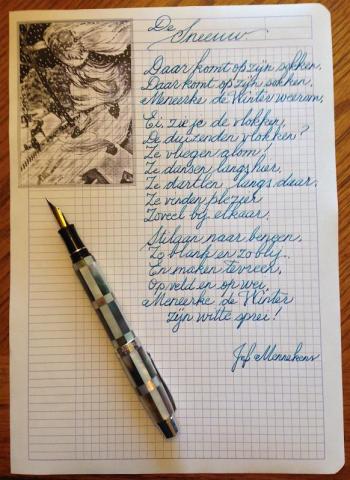 De
Sneeuw
Daar komt op zijn sokken,
Daar komt op zijn sokken,
Meneerke de Winter weerom,
Ei, zie je de vlokken,
De duizenden vlokken?
Ze vliegen alom!
Ze dansen langs hier,
Ze dartlen langs daar,
Ze vinden plezier
Zoveel bij elkaar.
Stilaan naar beneen,
Zo blank en zo blij..
En maken tevreen,
Op veld en op wei,
Meneerke de Winter
zijn witte sprei!
Jef Mennekens